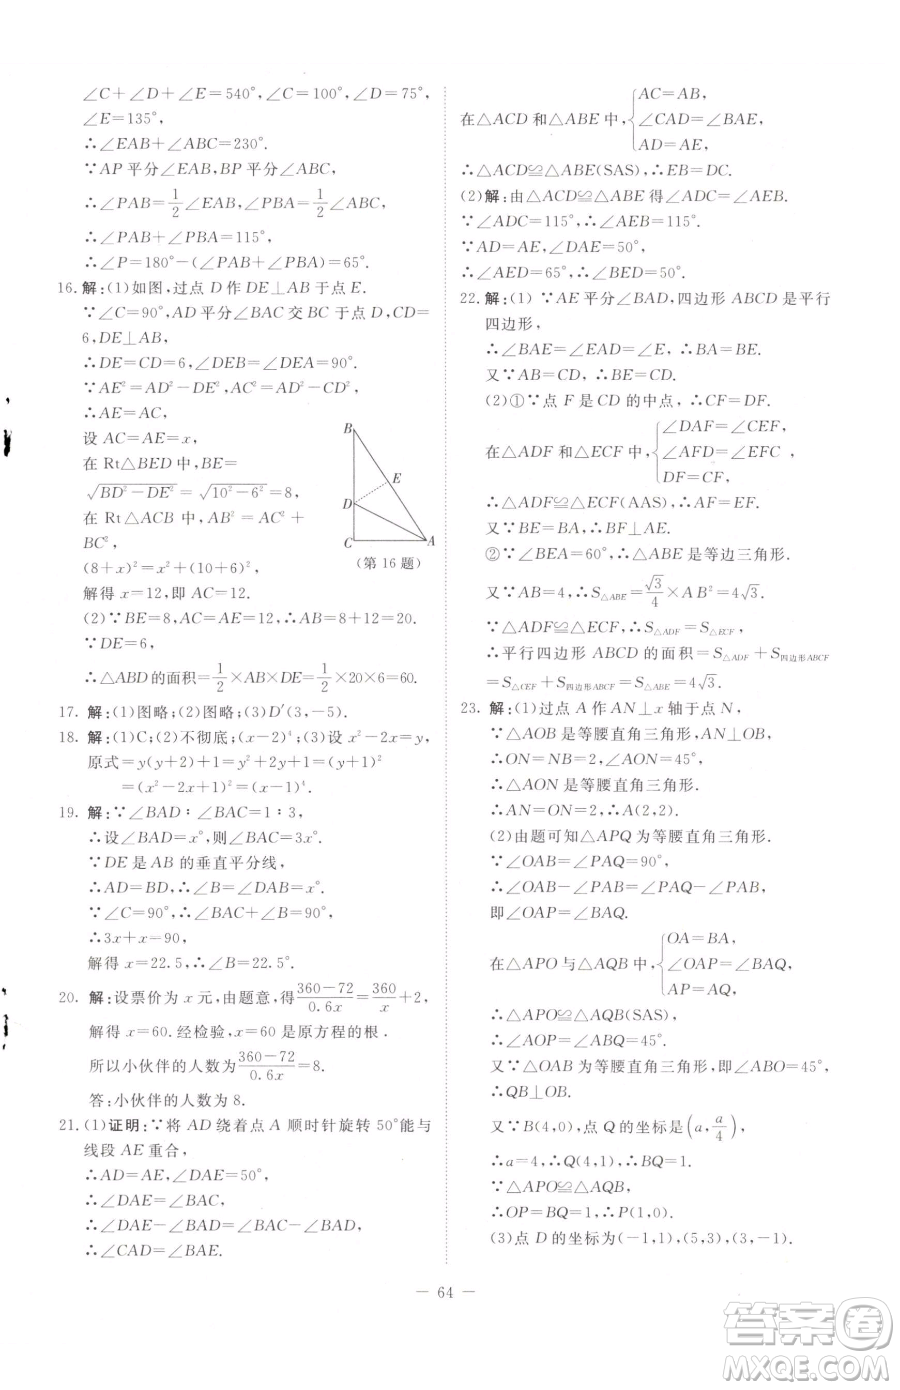 ∠C+∠D+∠E=540°,∠C=100°,∠D=75°,
∠E=135°,
∴∠EAB+∠ABC=230°.
∵AP平分∠EAB,BP平分∠ABC,
∴∠PAB=1/2∠EAB,∠PBA=1/2∠ABC,
∴∠PAB+∠PBA=115°,
∴∠P=180°-(∠PAB+∠PBA)=65°.
16. 解:(1)如图,过点D作DE⊥AB于点E.
∵∠C=90°,AD平分∠BAC交BC于点D,CD=
6,DE⊥AB,
∴DE=CD=6,∠DEB=∠DEA=90°.
∵AE²=AD²-DE²,AC²=AD²-CD²,
∴AE=AC,
设AC=AE=x,
在Rt△BED中,BE=
√(BD²-DE²)=√(10²-6²)=8,
在Rt△ACB中,AB²=AC²+
BC²,
(8+x)²=x²+(10+6)²,
解得x=12,即AC=12.
B
E
D
C
A
(第16题)
(2)∵BE=8,AC=12,∴AB=8+12=20.
∵DE=6,
∴△ABD的面积=1/2×AB×DE=1/2×20×6=60.
17. 解:(1)图略;(2)图略;(3)D′(3,-5).
18. 解:(1)C;(2)不彻底;(x-2)⁴;(3)设x²-2x=y,
原式=y(y+2)+1=y²+2y+1=(y+1)²
=(x²-2x+1)²=(x-1)⁴.
19. 解:∵∠BAD∶∠BAC=1∶3,
∴设∠BAD=x°,则∠BAC=3x°.
∵DE是AB的垂直平分线,
∴AD=BD,∴∠B=∠DAB=x°.
∵∠C=90°,∴∠BAC+∠B=90°,
∴3x+x=90,
解得x=22.5,∴∠B=22.5°.
20. 解:设票价为x元,由题意,得(360-72)/0.6x=360/x+2,
解得x=60.经检验,x=60是原方程的根.
所以小伙伴的人数为(360-72)/0.6x=8.
答:小伙伴的人数为8.
21. (1)证明:∵将AD绕着点A顺时针旋转50°能与
线段AE重合,
∴AD=AE,∠DAE=50°.
∴∠DAE=∠BAC,
∴∠DAE-∠BAD=∠BAC-∠BAD,
∴∠CAD=∠BAE.
在△ACD和△ABE中,{AC=AB,
∠CAD=∠BAE,
AD=AE,
∴△ACD≌△ABE(SAS),∴EB=DC.
(2)解:由△ACD≌△ABE得∠ADC=∠AEB.
∵∠ADC=115°,∴∠AEB=115°.
∵AD=AE,∠DAE=50°,
∴∠AED=65°,∴∠BED=50°.
22. 解:(1)∵AE平分∠BAD,四边形ABCD是平行
四边形,
∴∠BAE=∠EAD=∠E,∴BA=BE.
又∵AB=CD,∴BE=CD.
(2)①∵点F是CD的中点,∴CF=DF.
在△ADF和△ECF中,{∠DAF=∠CEF,
∠AFD=∠EFC
DF=CF,
∴△ADF≌△ECF(AAS),∴AF=EF.
又∵BE=BA,∴BF⊥AE.
②∵∠BEA=60°,∴△ABE是等边三角形.
又∵AB=4,∴S△ABE=√3/4×AB²=4√3.
∵△ADF≌△ECF,∴S△ADF=S△ECF,
∴平行四边形ABCD的面积=S△ADF+S四边形ABCF
=S△CEF+S四边形ABCF=S△ABE=4√3.
23. 解:(1)过点A作AN⊥x轴于点N,
∵△AOB是等腰直角三角形,AN⊥OB,
∴ON=NB=2,∠AON=45°,
∴△AON是等腰直角三角形,
∴AN=ON=2,∴A(2,2).
(2)由题可知△APQ为等腰直角三角形.
∵∠OAB=∠PAQ=90°,
∴∠OAB-∠PAB=∠PAQ-∠PAB,
即∠OAP=∠BAQ.
在△APO与△AQB中,{OA=BA,
∠OAP=∠BAQ,
AP=AQ,
∴△APO≌△AQB(SAS).
又∵△OAB为等腰直角三角形,∠ABO=45°,
∴QB⊥OB.
又∵B(4,0),点Q的坐标是(a,a/4),
∴a=4,∴Q(4,1),∴BQ=1.
∵△APO≌△AQB,
∴OP=BQ=1,∴P(1,0).
(3)点D的坐标为(-1,1),(5,3),(3,-1).
— 64 —
答案圈
MXQE.COM